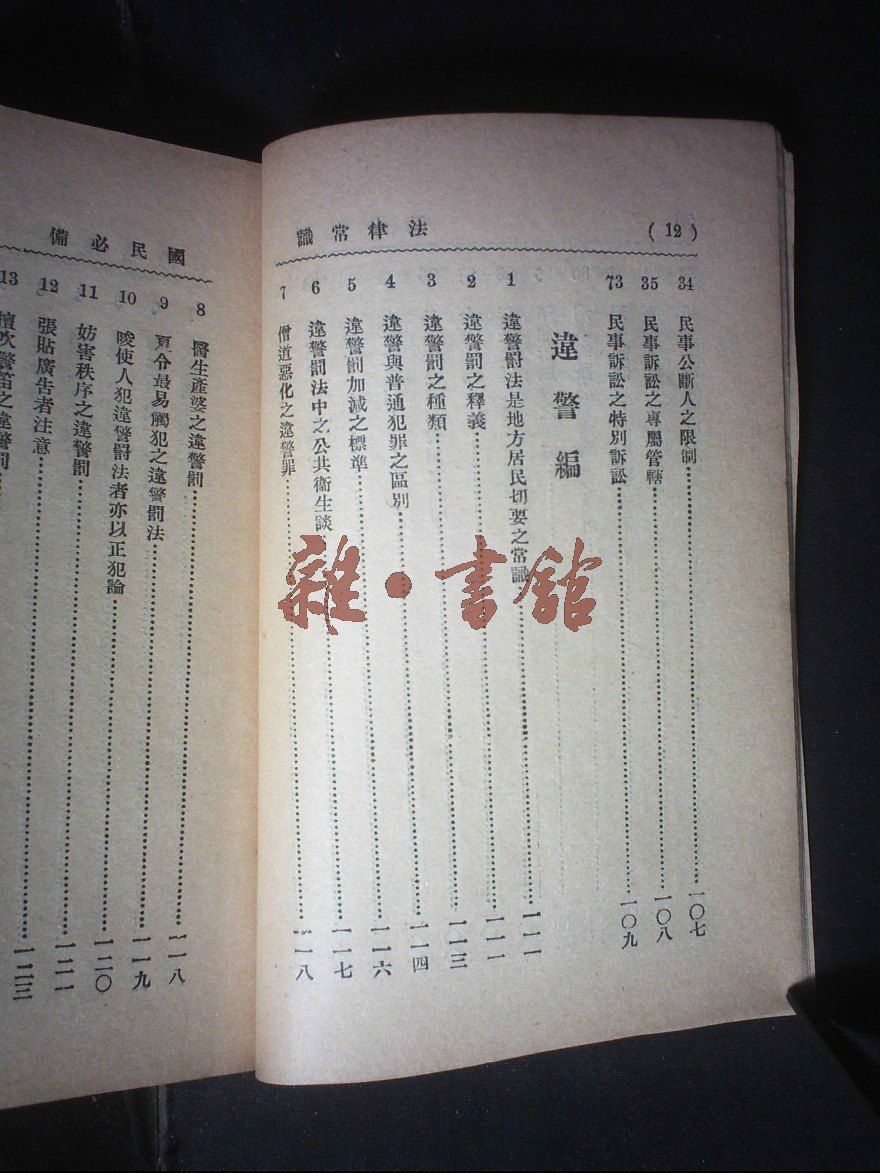 (12) 法律常識
34 民事公斷人之限制……一〇七
35 民事訴訟之專屬管轄……一〇八
73 民事訴訟之特別訴訟……一〇九
違警編
1 違警罰法是地方居民切要之常識……一一一
2 違警罰之釋義……一一一
3 違警罰之種類……一一三
4 違警與普通犯罪之區別……一一四
5 違警罰加減之標準……一一六
6 違警罰法中之公共衞生談……一一七
7 僧道惡化之違警罪……一一八
國民必備
8 醫生產婆之違警罰……一一八
9 夏令最易觸犯之違警罰法……一一九
10 唆使人犯違警罰法者亦以正犯論……一二〇
11 妨害秩序之違警罰……一二一
12 張貼廣告者注意……一二三
13 擅吹警笛之違警罰
雜·書館